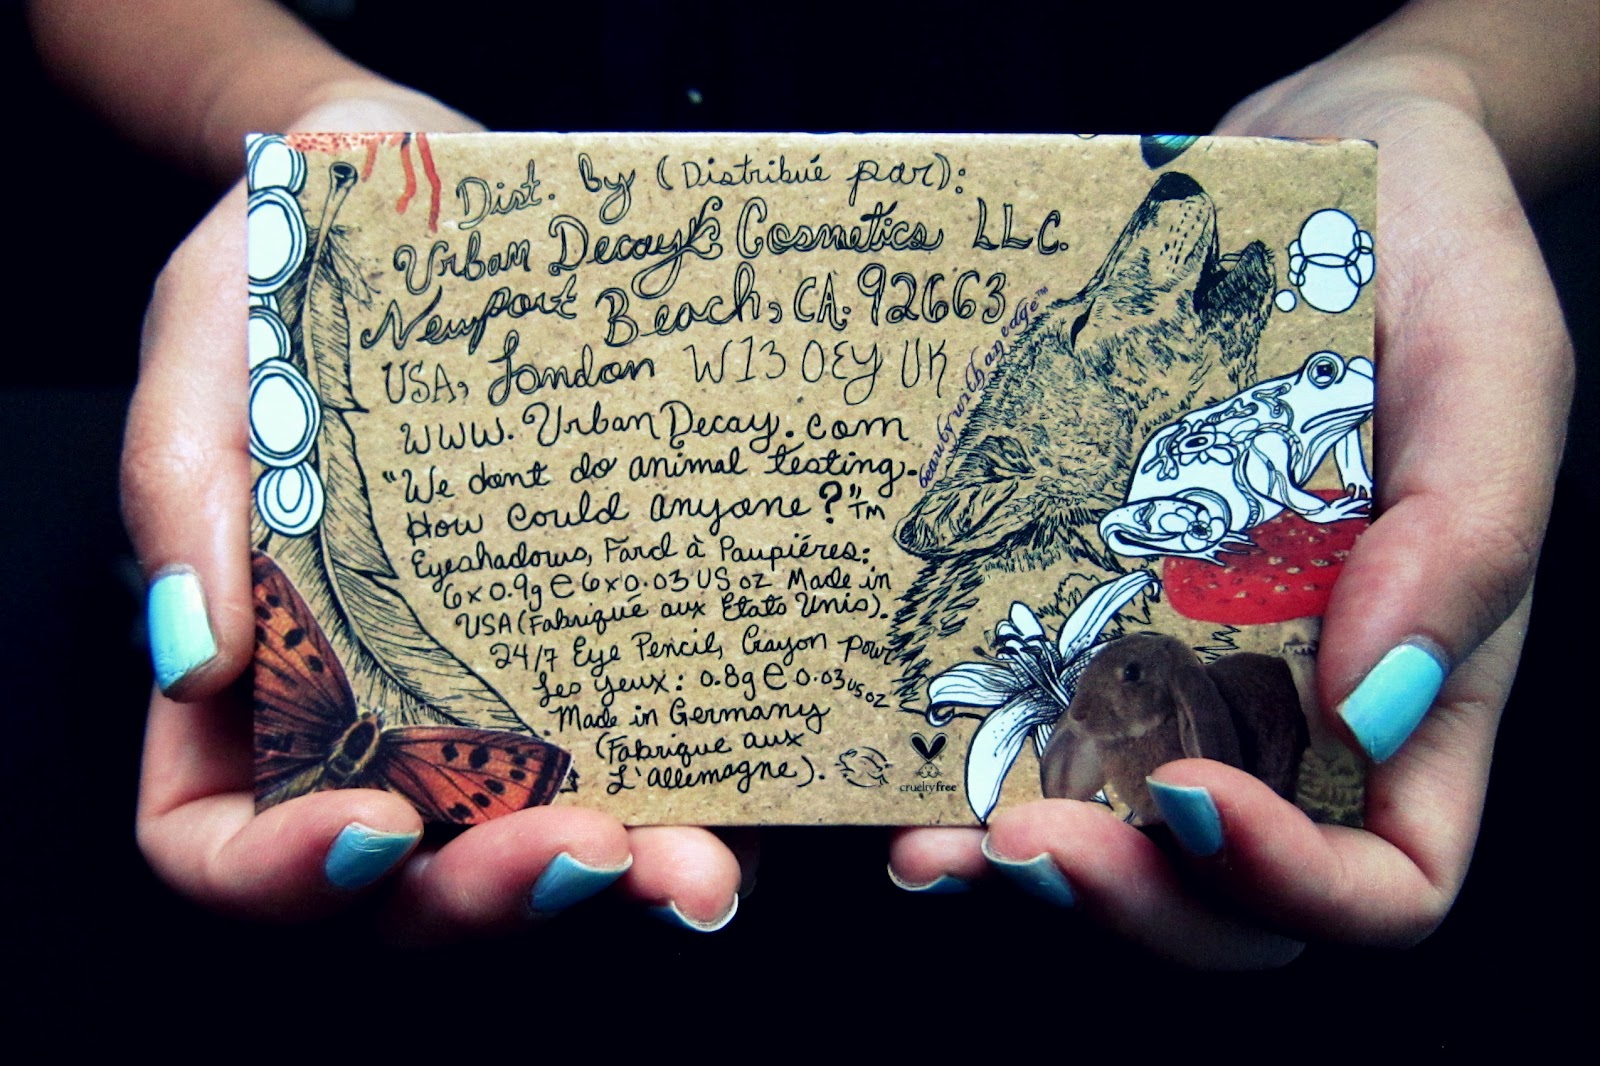 Dist. by (Distribué par):
Urban Decay Cosmetics LLC.
Newport Beach, CA. 92663
USA, London W13 0EY UK
www.UrbanDecay.com
"We dont do animal testing.
How could anyone?"™
Eyeshadows, Fard à Paupiéres:
6x0.9g e 6x0.03 US oz Made in
USA (Fabriqué aux Etats Unis).
24/7 Eye Pencil, Crayon pour
Les yeux: 0.8g e 0.03 US oz
Made in Germany
(Fabrique aux
L'allemagne).
beauty with an edge™
crueltyfree